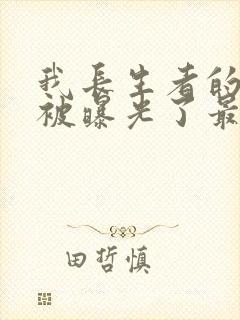 我长生者的
被曝光了最
田哲慎